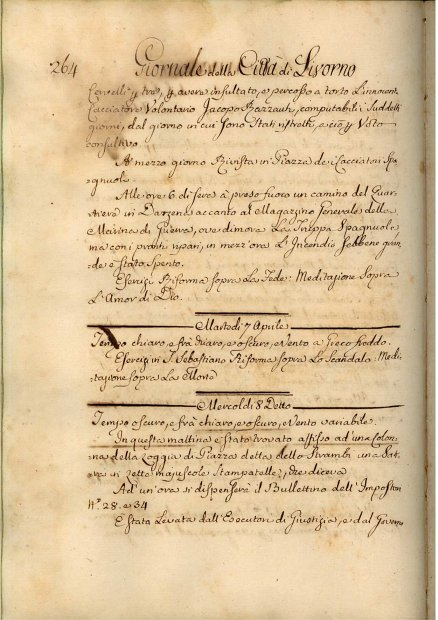 264 Giornale della Città di Livorno
Cervelli p. tre, p. avere insultato, e percosso a torto l'innocent.
Cacciatore Volontario Jacopo Bazzauti, computabili i Suddetti
giorni, dal giorno in cui sono stati ristretti, e ciò p. Voto
consultivo.
A mezzo giorno Rivista in Piazza de i Cacciatori Spa-
gnuoli.
Alle ore 6 di sera à preso fuoco un camino del Quar-
tiere in Darzena accanto al Magazzino Generale della
Marina di Guerra, ove dimora La Truppa Spagnuola,
ma con i pronti ripari, in mezz'ora L'Incendio sebbene gran-
de è stato spento.
Esercizi Riforma sopra La Fede: Meditazione Sopra
L'Amor di Dio.
Martedì 7 Aprile
Tempo chiaro, e frà chiaro, e oscuro, Vento a Greco freddo.
Esercizi in S. Sebastiano Riforma sopra Lo Scandalo: Medi-
tazione sopra La Morte
Mercoldì 8 Detto
Tempo oscuro, e frà chiaro, e oscuro, Vento variabile.
In questa mattina è stato trovato affisso ad una Colon-
na della Loggia di Piazza detta dello Strambi una Sat-
ira in lettere majuscole Stampatelle, che diceva
Ad un'ora si dispenserà il Bullettino dell'Impostori
N.° 28. e 34
È stata Levata dall'Esecutori di Giustizia, e dal Governo